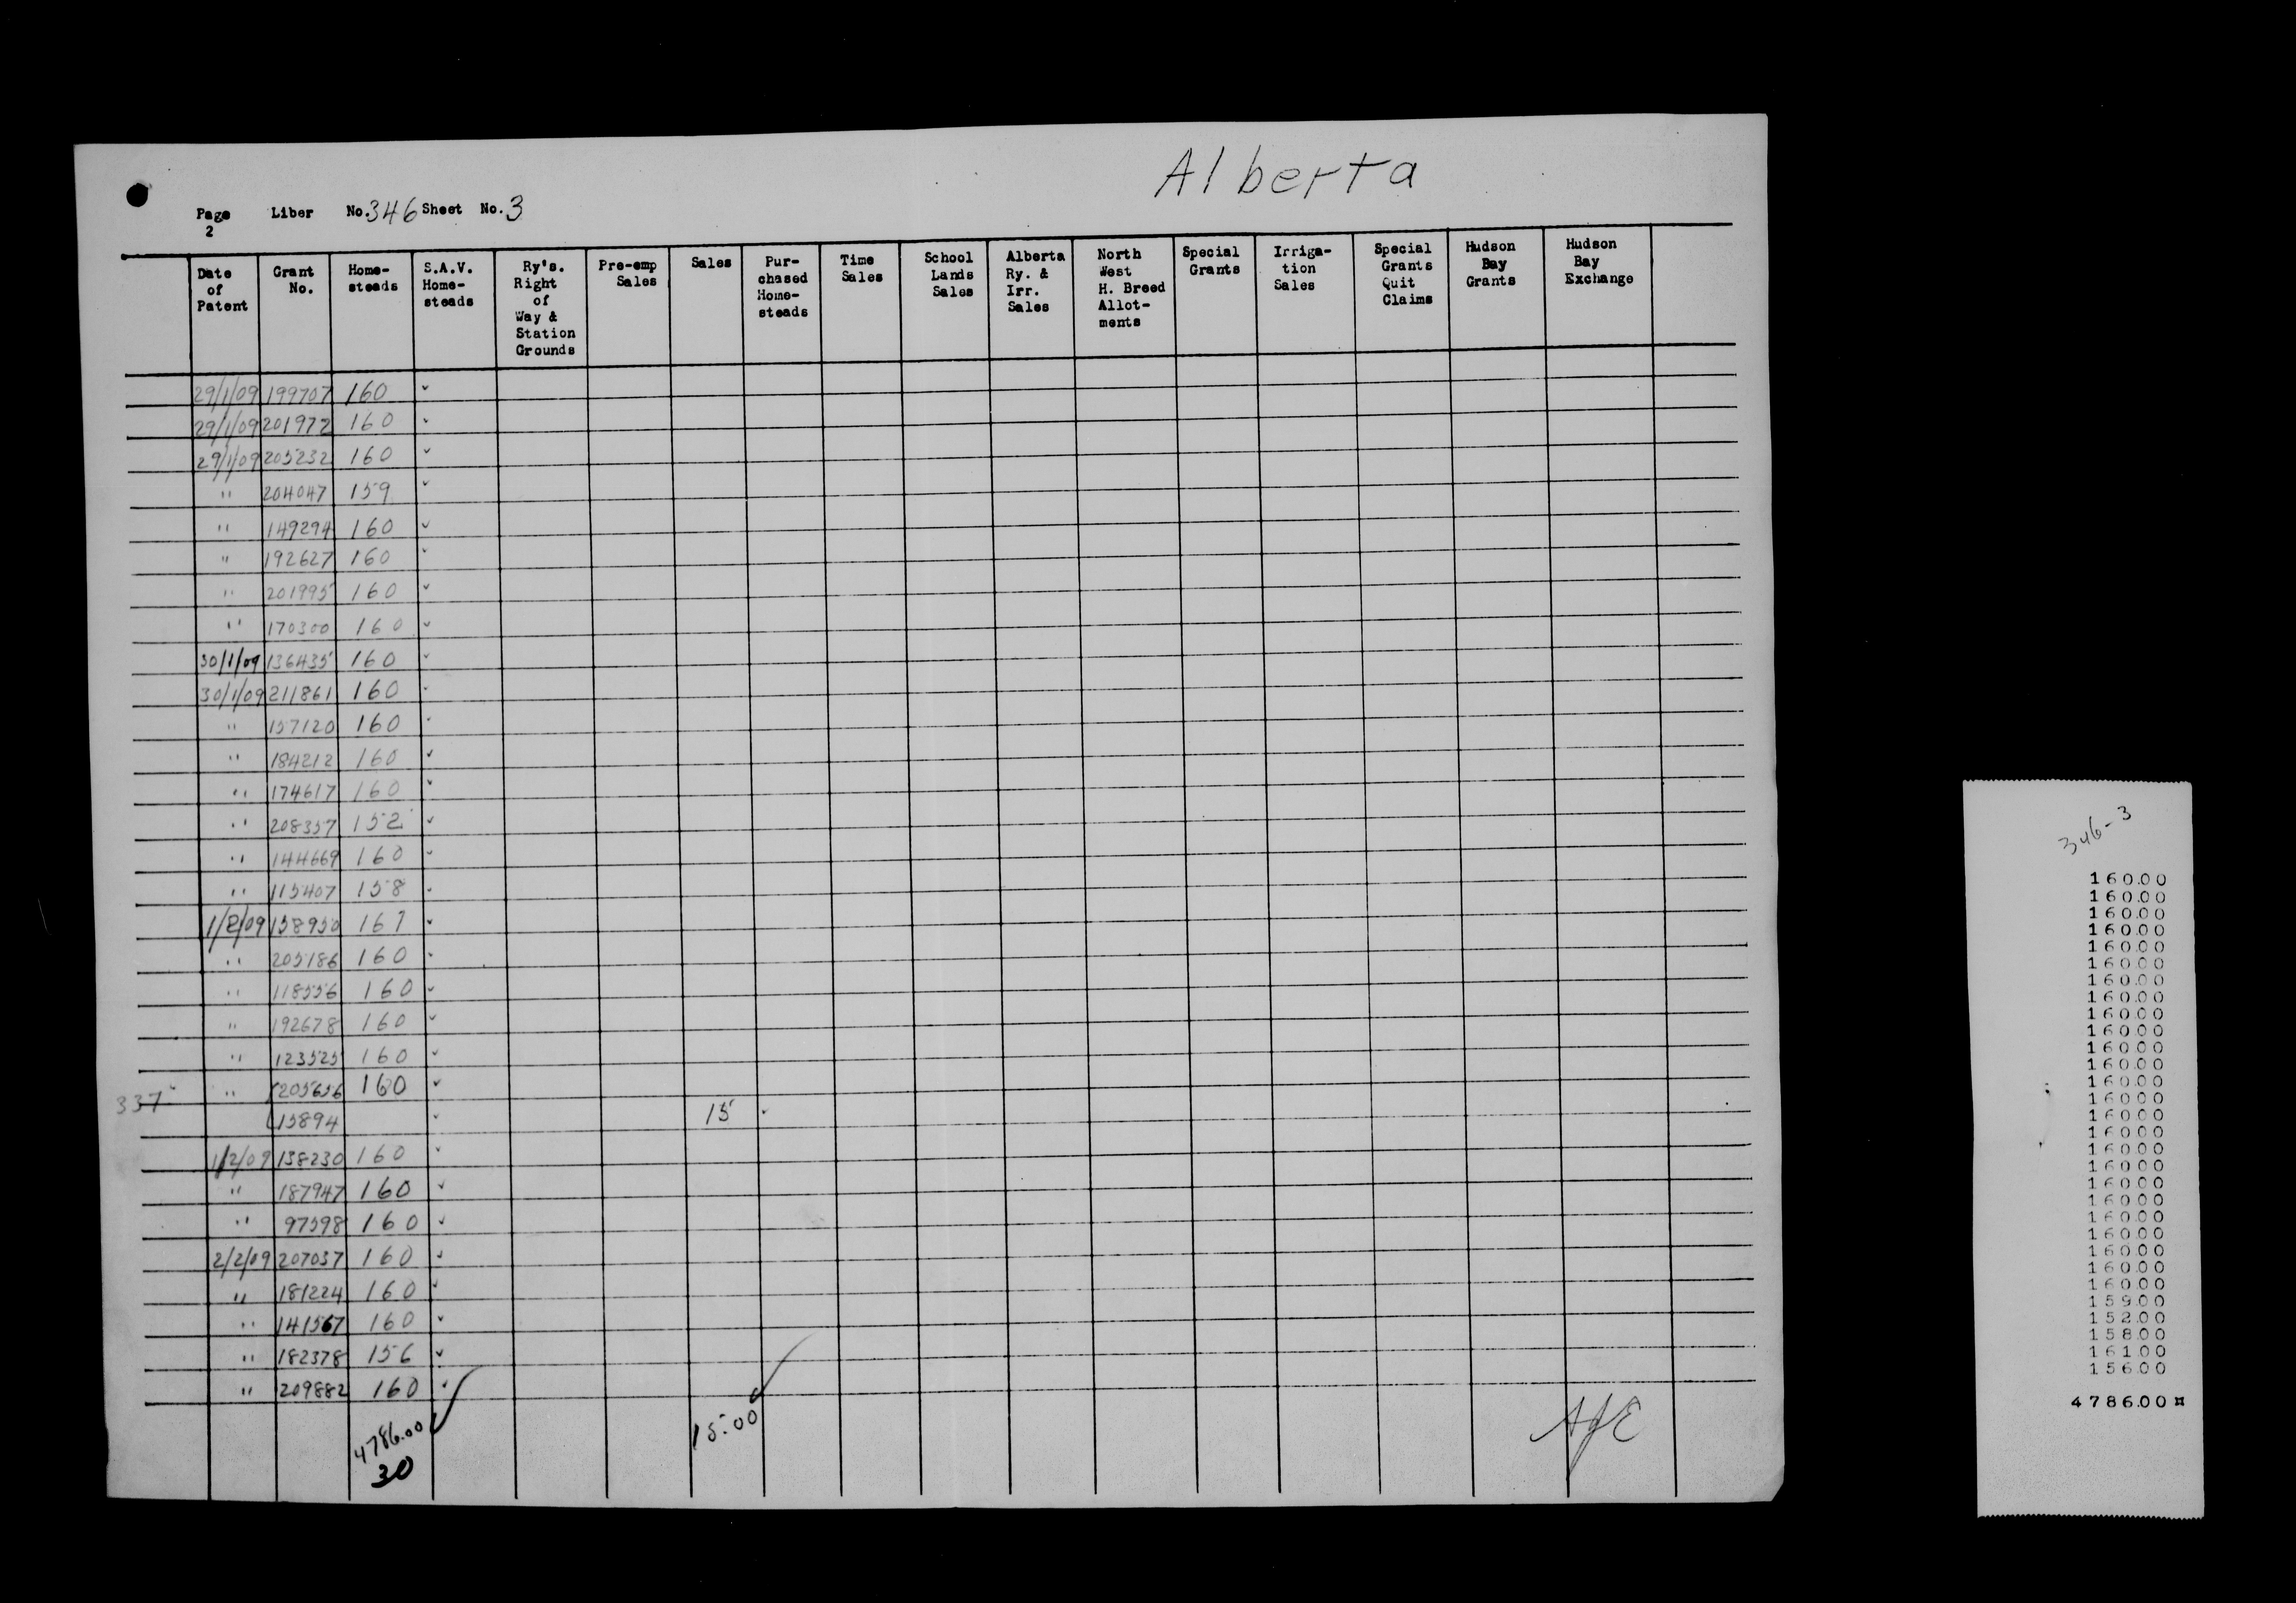 Alberta
Page 2 Liber No. 346 Sheet No. 3
Date of Patent | Grant No. | Home-steads | S.A.V. Home-steads | Ry's. Right of Way & Station Grounds | Pre-emp Sales | Sales | Pur-chased Home-steads | Time Sales | School Lands Sales | Alberta Ry. & Irr. Sales | North West H. Breed Allot-ments | Special Grants | Irriga-tion Sales | Special Grants Quit Claims | Hudson Bay Grants | Hudson Bay Exchange
29/1/09 199707 160
29/1/09 201972 160
29/1/09 205232 160
" 204047 159
" 149294 160
" 192627 160
" 201995 160
" 170300 160
30/1/09 136435 160
30/1/09 211861 160
" 157120 160
" 184212 160
" 174617 160
" 208357 152
" 144669 160
" 115407 158
1/2/09 158950 161
" 205186 160
" 118556 160
" 192678 160
" 123525 160
337 " 205656 160
15894 15
1/2/09 138230 160
" 187947 160
" 97598 160
2/2/09 207037 160
" 181224 160
" 141567 160
" 182378 156
" 209882 160
4786.00 15.00
30
346-3
160.00
160.00
160.00
160.00
160.00
160.00
160.00
160.00
160.00
160.00
160.00
160.00
160.00
160.00
160.00
160.00
160.00
160.00
160.00
160.00
160.00
160.00
160.00
160.00
160.00
159.00
152.00
158.00
161.00
156.00
4786.00¤